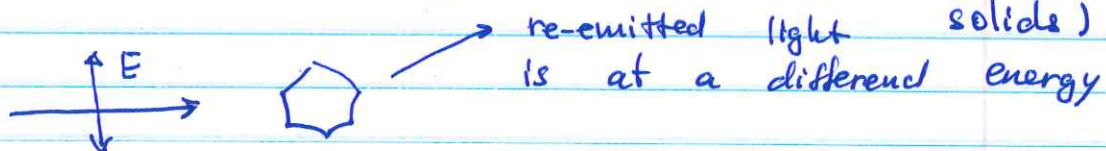 re-emitted light solids)
E
is at a differend energy